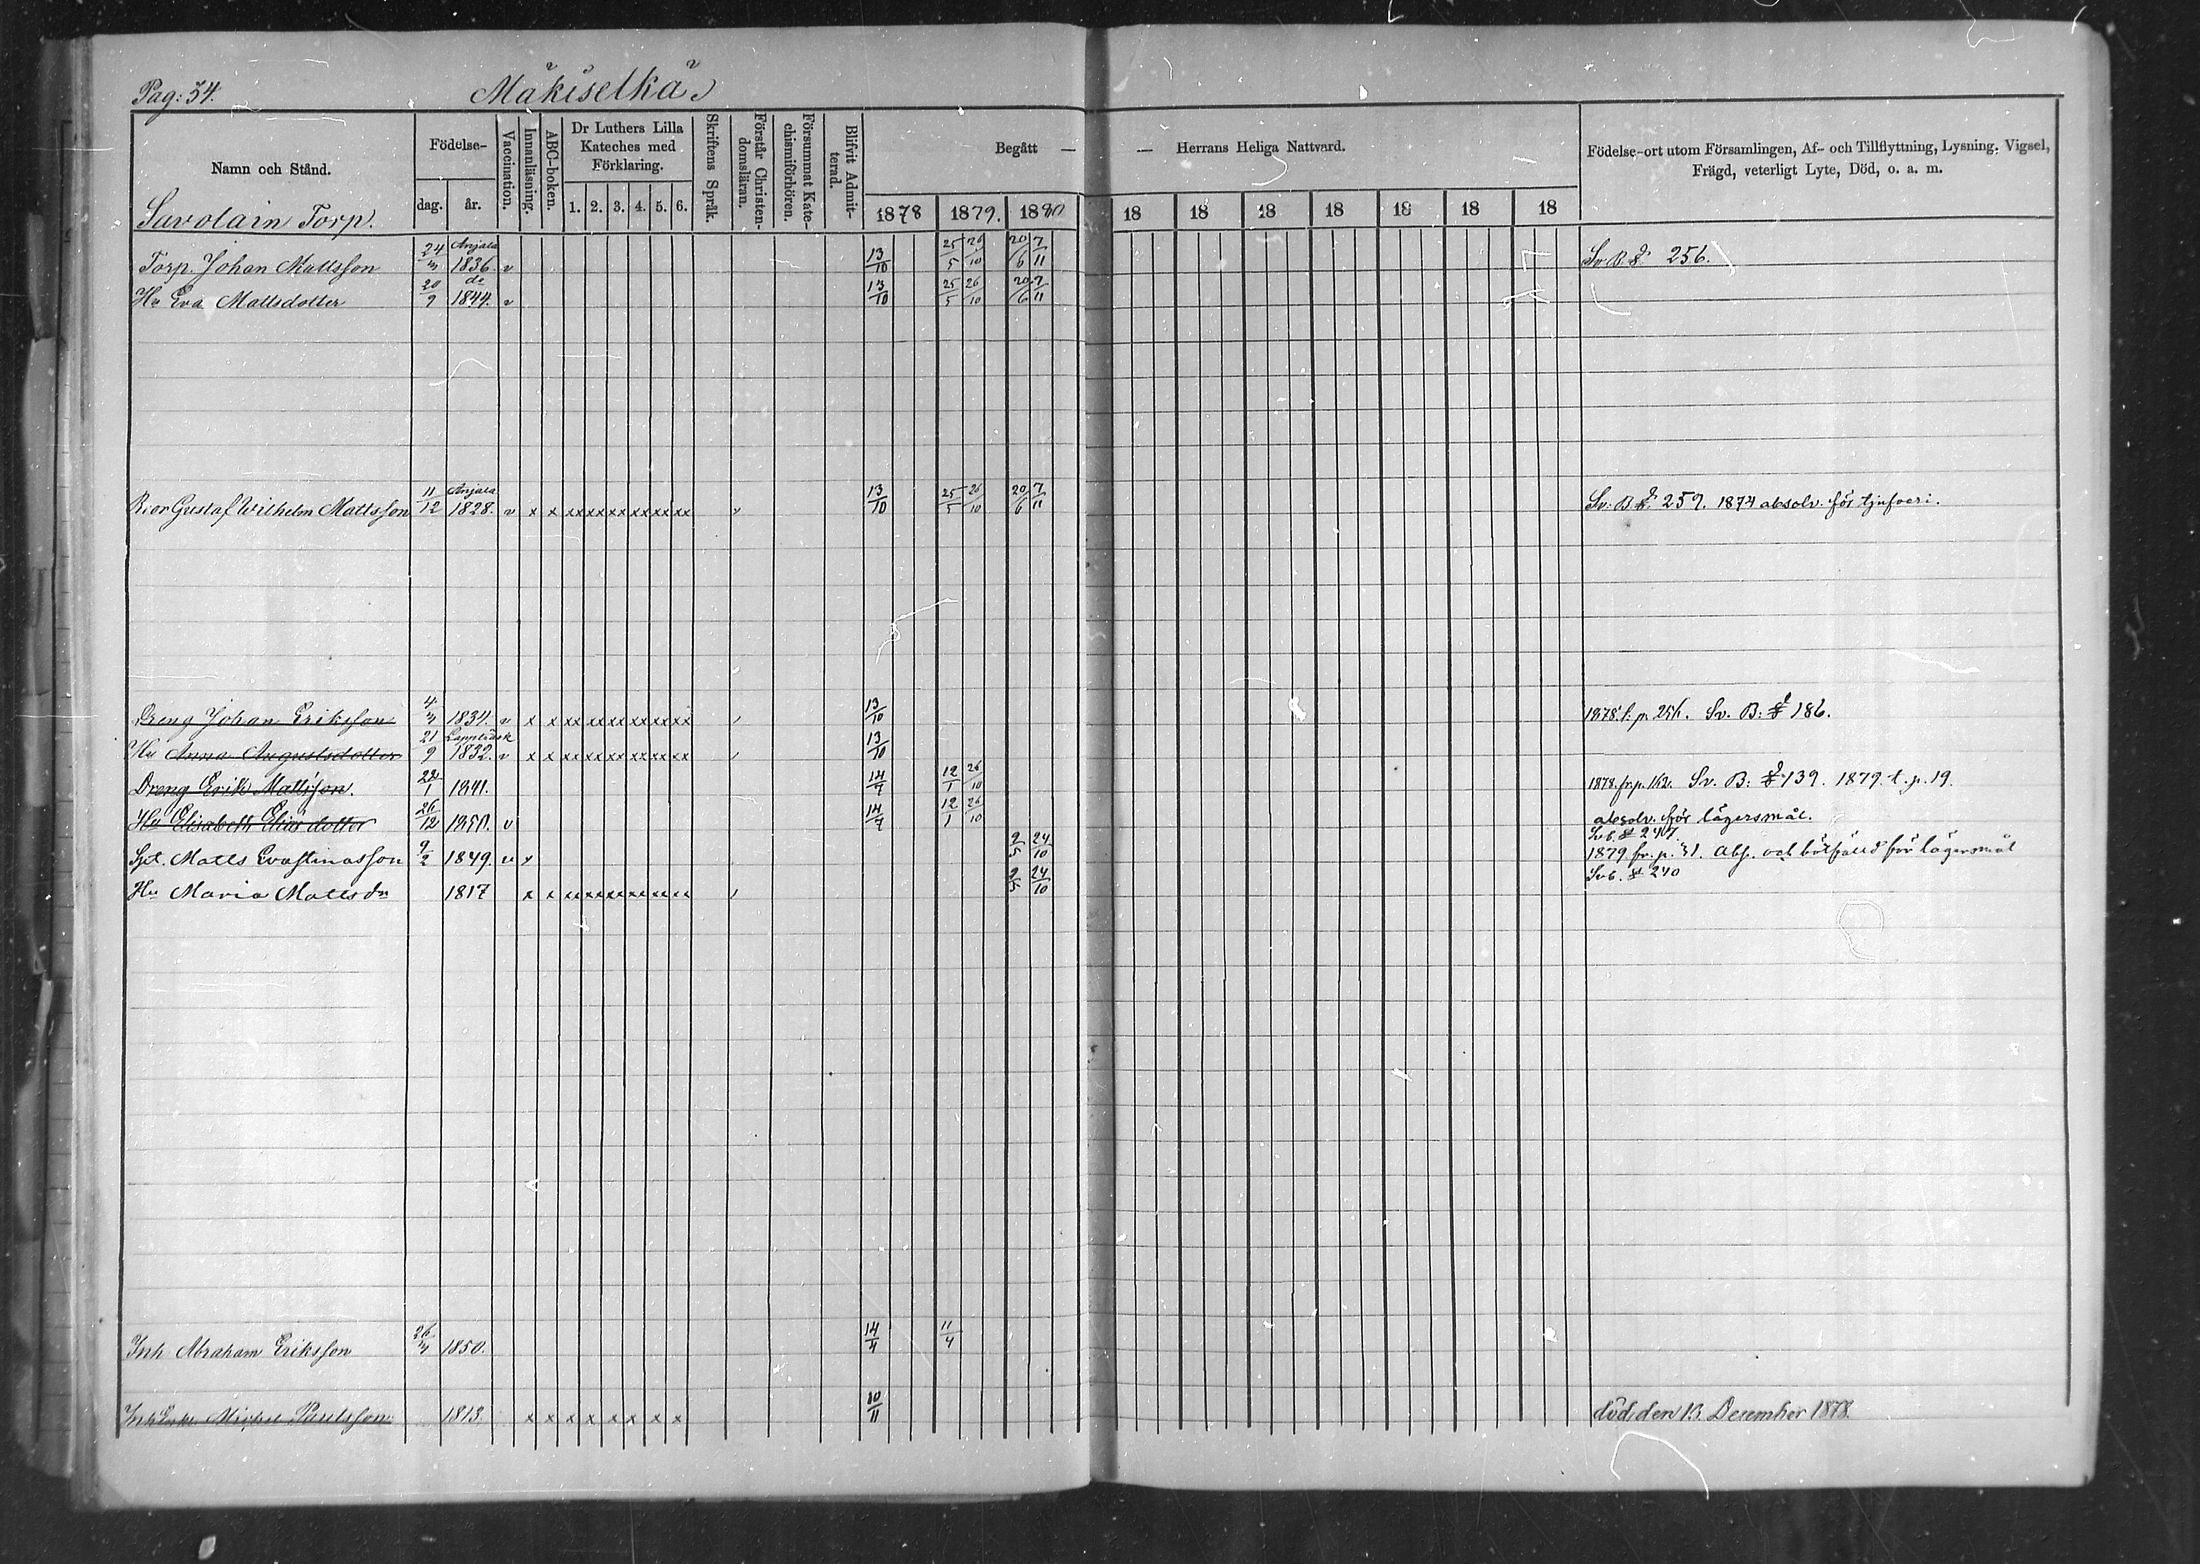 Pag: 54.
Mäkiselkä
Namn och Stånd.
Födelse-
dag.
år.
Vaccination.
Innanläsning.
ABC-boken.
Dr Luthers Lilla
Kateches med
Förklaring.
1. 2. 3. 4. 5. 6.
Skriftens Språk.
Förstår Christen-
domsläran.
Försummat Kate-
chismiförhören.
Blifvit Admit-
terad.
Begått — — Herrans Heliga Nattvard.
1878 1879. 1880 18 18 18 18 18 18 18
Födelse-ort utom Församlingen, Af- och Tillflyttning, Lysning, Vigsel,
Frägd, veterligt Lyte, Död, o. a. m.
Savolain Torp.
Torp. Johan Mattsson 24/3 Anjala 1836. v 13/10 25/5 26/10 20/6 7/11 Sv. B. 256.
Hu Eva Mattsdotter 20/9 do 1844. v 13/10 25/5 26/10 20/6 7/11
Bror Gustaf Wilhelm Mattsson 11/12 Anjala 1828. v x x xx xx xx xx xx xx 13/10 25/5 26/10 20/6 7/11 Sv. B. 259. 1874 absolv. för tjufveri.
Dreng Johan Eriksson 4/3 1834. v x x xx xx xx xx xx xx 13/10 1878 t. p. Sv. B: 186.
Hu Anna Augustsdotter 21/9 Lappträsk 1832. v x x xx xx xx xx xx xx 13/10
Dreng Erik Mattsson. 22/1 1841. 14/7 12/1 26/10 1878. fr. p. 162. Sv. B: 139. 1879 t. p. 19.
Hu Elisabeth Eliasdotter 26/12 1850. v 14/7 12/1 26/10 absolv. för lägersmål.
Svb. 247.
Matts 9/2 1849 v x 2/5 24/10 1879 fr. p. 31. Abs. och bötfälld för lägersmål
Svb. 240
Hu Maria Mattsdr 1817 x x xx xx xx xx xx xx 2/5 24/10
Inh Abraham Eriksson 26/3 1850. 14/4 11/4
Inh Enkl. Paulsson 1813. x x x x x x x x 10/11 död den 13 December 1878.